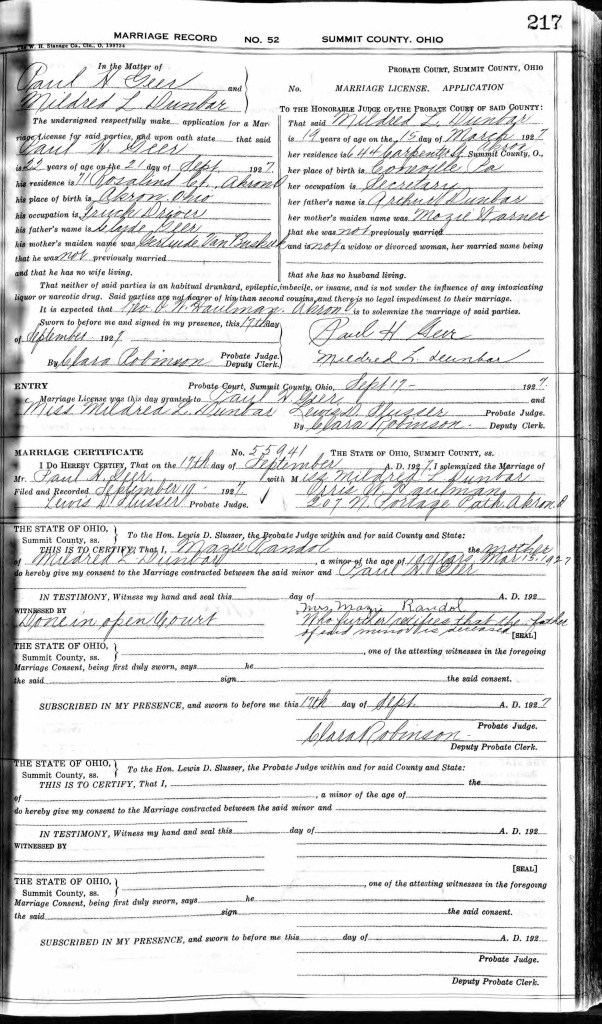 217
MARRIAGE RECORD NO. 52 SUMMIT COUNTY, OHIO
The W. H. Stanage Co., Cin., O.
In the Matter of
Paul H. Geer and
Mildred L. Dunbar
The undersigned respectfully make application for a Mar-
riage License for said parties, and upon oath state that said
Paul H. Geer
is 22 years of age on the 21 day of Sept 1927.
his residence is 71 Rosalind Ct., Akron O
his place of birth is Akron Ohio
his occupation is Truck Driver
his father's name is Clyde Geer
his mother's maiden name was Gertrude Van Buskirk
that he was not previously married
and that he has no wife living.
PROBATE COURT, SUMMIT COUNTY, OHIO
No. MARRIAGE LICENSE. APPLICATION
TO THE HONORABLE JUDGE OF THE PROBATE COURT OF SAID COUNTY:
That said Mildred L. Dunbar
is 19 years of age on the 15 day of March 1927
her residence is 44 Carpenter St. Akron Summit County, O.,
her place of birth is Pa
her occupation is Secretary
her father's name is Arthur Dunbar
her mother's maiden name was Mozie Warner
that she was not previously married
and is not a widow or divorced woman, her married name being
that she has no husband living.
That neither of said parties is an habitual drunkard, epileptic, imbecile, or insane, and is not under the influence of any intoxicating
liquor or narcotic drug. Said parties are not nearer of kin than second cousins, and there is no legal impediment to their marriage.
It is expected that Rev O. W. Haulman Akron O is to solemnize the marriage of said parties.
Sworn to before me and signed in my presence, this 17th day
of September 1927
Probate Judge.
By Clara Robinson Deputy Clerk.
Paul H Geer
Mildred L. Dunbar
ENTRY Probate Court, Summit County, Ohio, Sept 17- 1927.
Marriage License was this day granted to Paul H. Geer and
Miss Mildred L. Dunbar Lewis D. Slusser Probate Judge.
By Clara Robinson. Deputy Clerk.
MARRIAGE CERTIFICATE No. 55941 THE STATE OF OHIO, SUMMIT COUNTY, ss.
I DO HEREBY CERTIFY, That on the 17th day of September A. D. 1927, I solemnized the Marriage of
Mr. Paul H. Geer with Miss Mildred L. Dunbar
Filed and Recorded September 19- 1927. Haulman
Lewis D. Slusser Probate Judge. 207 N. Portage Path Akron O
THE STATE OF OHIO,
Summit County, ss.
To the Hon. Lewis D. Slusser, the Probate Judge within and for said County and State:
THIS IS TO CERTIFY, That I, Mazie Randol the mother
of Mildred L. Dunbar, a minor of the age of 19 years, Mar 15, 1927
do hereby give my consent to the Marriage contracted between the said minor and Paul H. Geer
IN TESTIMONY, Witness my hand and seal this day of A. D. 192
WITNESSED BY
Done in open Court
Mrs. Mazie Randol
Who further certifies that the father
of said minor is deceased. [SEAL]
THE STATE OF OHIO,
Summit County, ss.
, one of the attesting witnesses in the foregoing
Marriage Consent, being first duly sworn, says he
the said sign the said consent.
SUBSCRIBED IN MY PRESENCE, and sworn to before me this 17th day of Sept. A. D. 1927
Probate Judge.
Clara Robinson-
Deputy Probate Clerk.
THE STATE OF OHIO,
Summit County, ss.
To the Hon. Lewis D. Slusser, the Probate Judge within and for said County and State:
THIS IS TO CERTIFY, That I, the
of , a minor of the age of
do hereby give my consent to the Marriage contracted between the said minor and
IN TESTIMONY, Witness my hand and seal this day of A. D. 192
WITNESSED BY
[SEAL]
THE STATE OF OHIO,
Summit County, ss.
, one of the attesting witnesses in the foregoing
Marriage Consent, being first duly sworn, says he
the said sign the said consent.
SUBSCRIBED IN MY PRESENCE, and sworn to before me this day of A. D. 192
Probate Judge.
Deputy Probate Clerk.